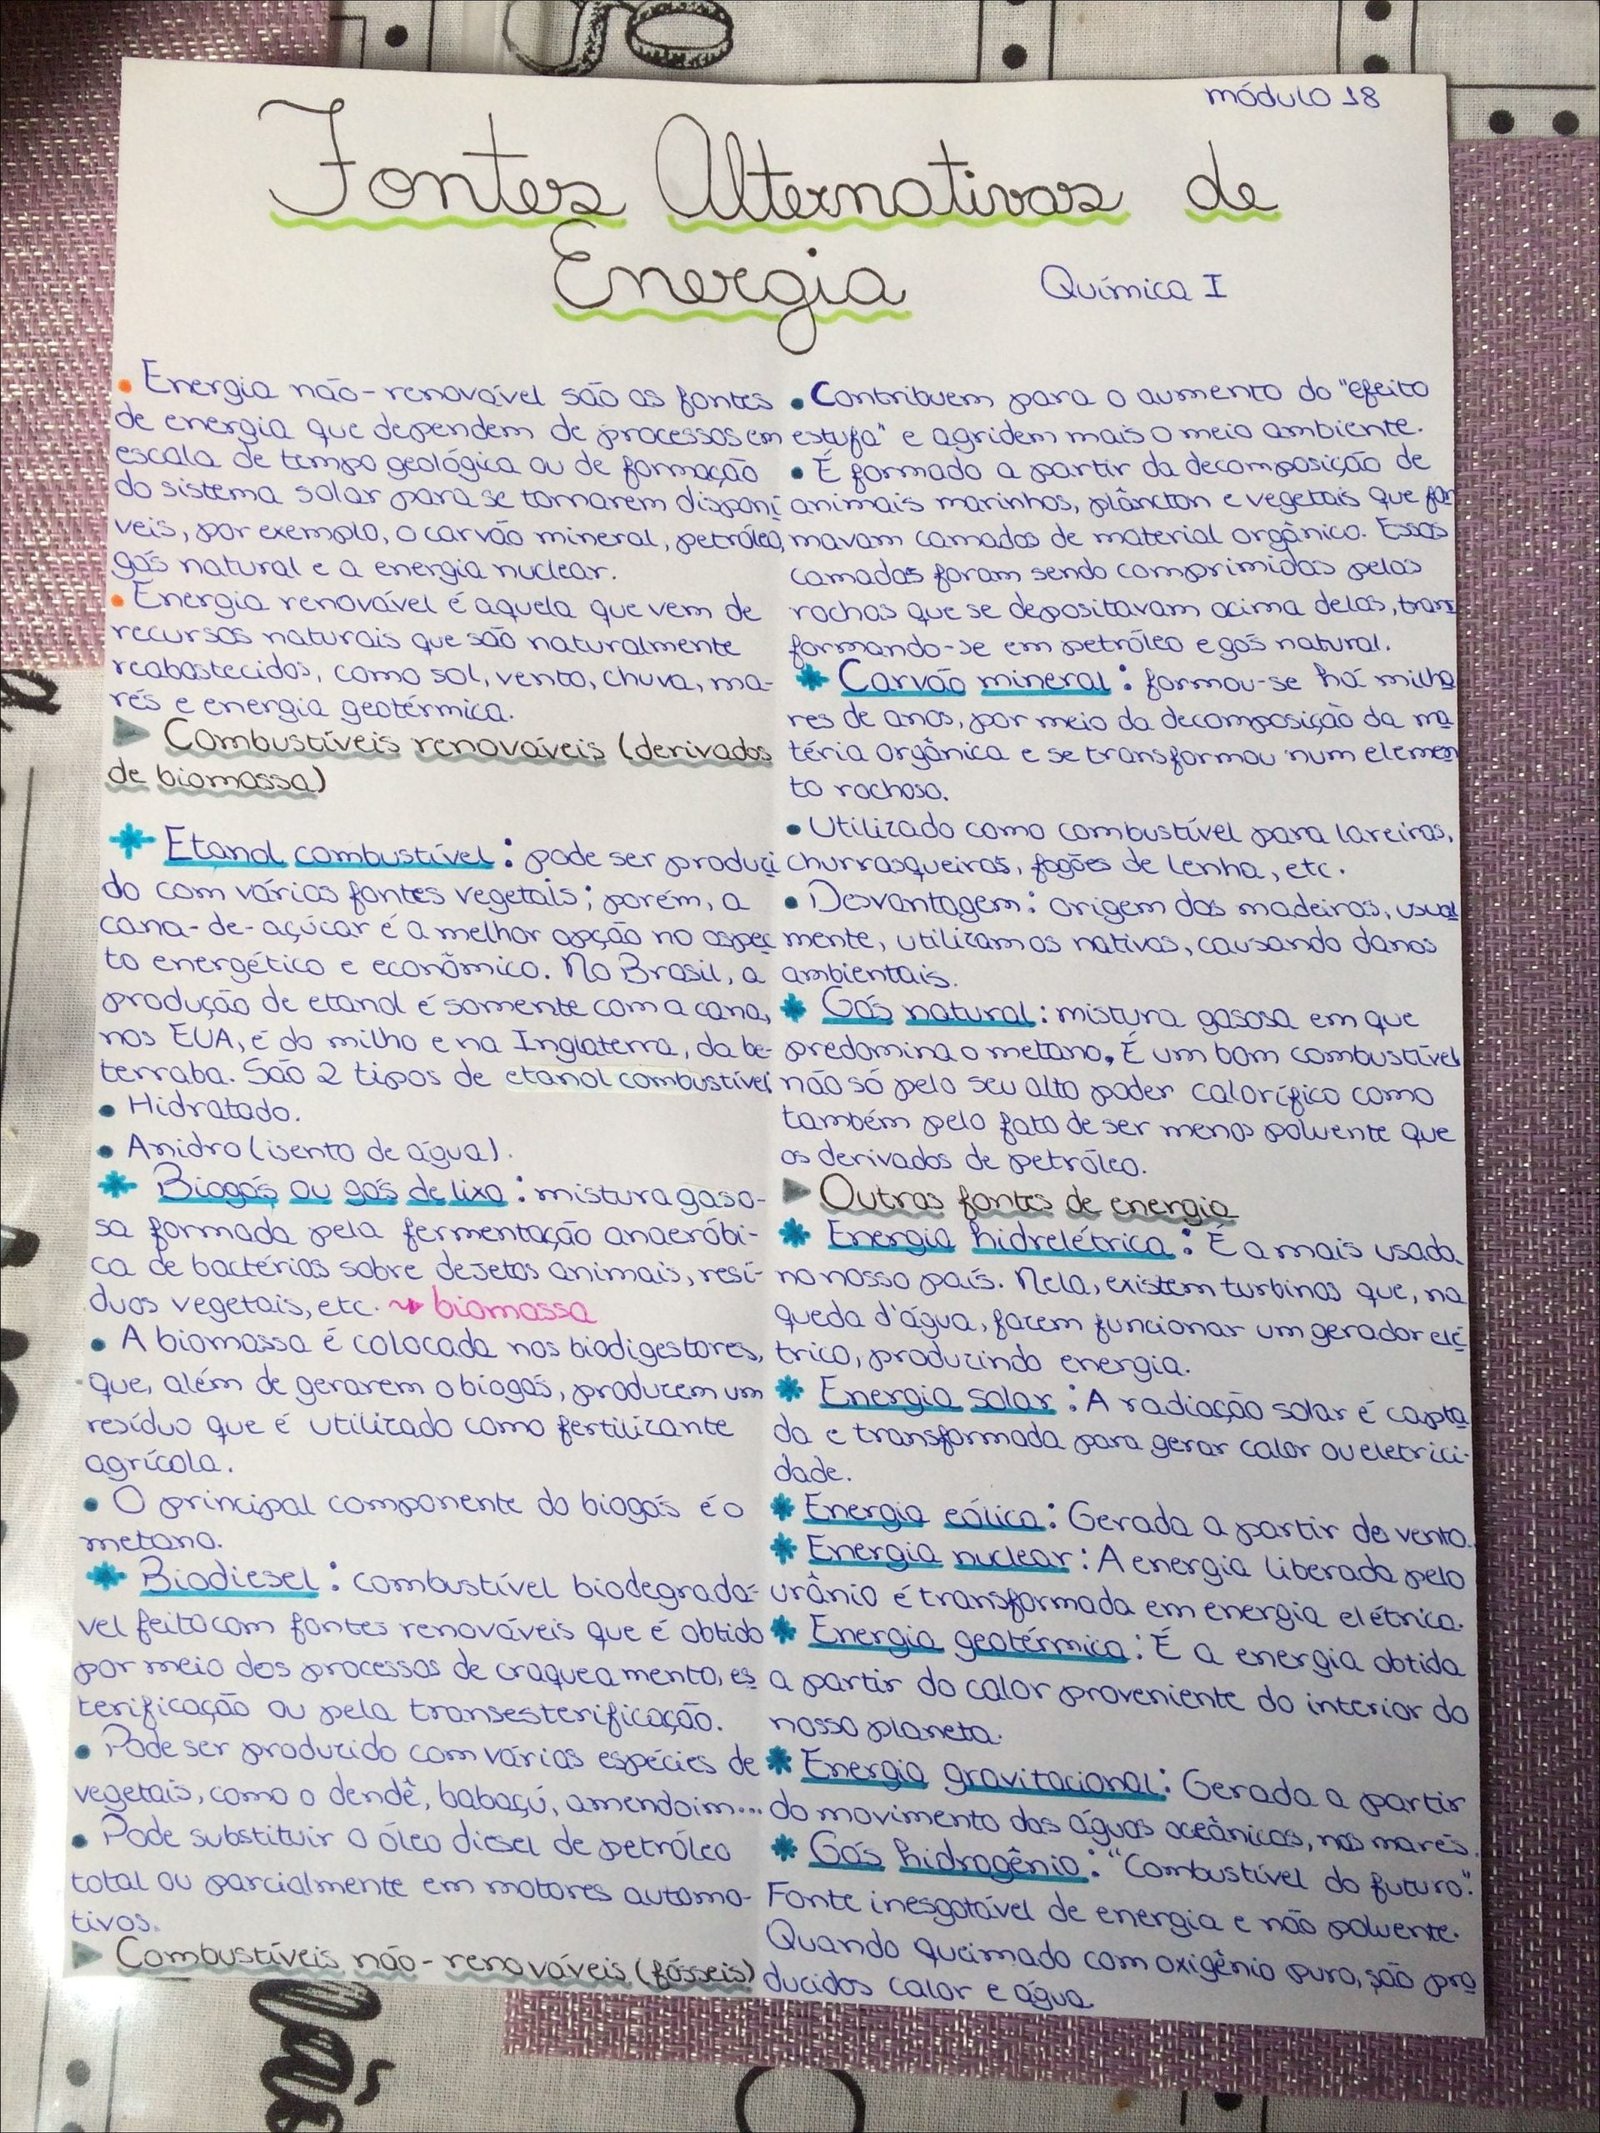 módulo 18
Fontes Alternativas de
Energia
Química I
• Energia não-renovável são as fontes
de energia que dependem de processos em
escala de tempo geológica ou de formação
do sistema solar para se tornarem disponí
veis, por exemplo, o carvão mineral, petróleo,
gás natural e a energia nuclear.
• Energia renovável é aquela que vem de
recursos naturais que são naturalmente
reabastecidos, como sol, vento, chuva, ma-
rés e energia geotérmica.
▶ Combustíveis renováveis (derivados
de biomassa)
* Etanol combustível: pode ser produzi
do com várias fontes vegetais; porém, a
cana-de-açúcar é a melhor opção no aspec
to energético e econômico. No Brasil, a
produção de etanol é somente com a cana,
nos EUA, é do milho e na Inglaterra, da be-
terraba. São 2 tipos de etanol combustível
• Hidratado.
• Anidro (isento de água).
* Biogás ou gás de lixo: mistura gaso-
sa formada pela fermentação anaeróbi-
ca de bactérias sobre dejetos animais, resí-
duos vegetais, etc. → biomassa
• A biomassa é colocada nos biodigestores,
que, além de gerarem o biogás, produzem um
resíduo que é utilizado como fertilizante
agrícola.
• O principal componente do biogás é o
metano.
* Biodiesel: combustível biodegradá-
vel feito com fontes renováveis que é obtido
por meio dos processos de craqueamento, es
terificação ou pela transesterificação.
• Pode ser produzido com várias espécies de
vegetais, como o dendê, babaçú, amendoim...
• Pode substituir o óleo diesel de petróleo
total ou parcialmente em motores automo-
tivos.
▶ Combustíveis não-renováveis (fósseis)
• Contribuem para o aumento do "efeito
estufa" e agridem mais o meio ambiente.
• É formado a partir da decomposição de
animais marinhos, plâncton e vegetais que for
mavam camadas de material orgânico. Essas
camadas foram sendo comprimidas pelas
rochas que se depositavam acima delas, trans
formando-se em petróleo e gás natural.
* Carvão mineral: formou-se há milha
res de anos, por meio da decomposição da ma
téria orgânica e se transformou num elemen
to rochoso.
• Utilizado como combustível para lareiras,
churrasqueiras, fogões de lenha, etc.
• Desvantagem: origem das madeiras, usual
mente, utilizamos nativas, causando danos
ambientais.
* Gás natural: mistura gasosa em que
predomina o metano. É um bom combustível
não só pelo seu alto poder calorífico como
também pelo fato de ser menos poluente que
os derivados de petróleo.
▶ Outras fontes de energia
* Energia hidrelétrica: É a mais usada
no nosso país. Nela, existem turbinas que, na
queda d'água, fazem funcionar um gerador elé
trico, produzindo energia.
* Energia solar: A radiação solar é capta
da e transformada para gerar calor ou eletrici-
dade.
* Energia eólica: Gerada a partir do vento.
* Energia nuclear: A energia liberada pelo
urânio é transformada em energia elétrica.
* Energia geotérmica: É a energia obtida
a partir do calor proveniente do interior do
nosso planeta.
* Energia gravitacional: Gerada a partir
do movimento das águas oceânicas, nas marés.
* Gás hidrogênio: "Combustível do futuro".
Fonte inesgotável de energia e não poluente.
Quando queimado com oxigênio puro, são pro
duzidos calor e água.